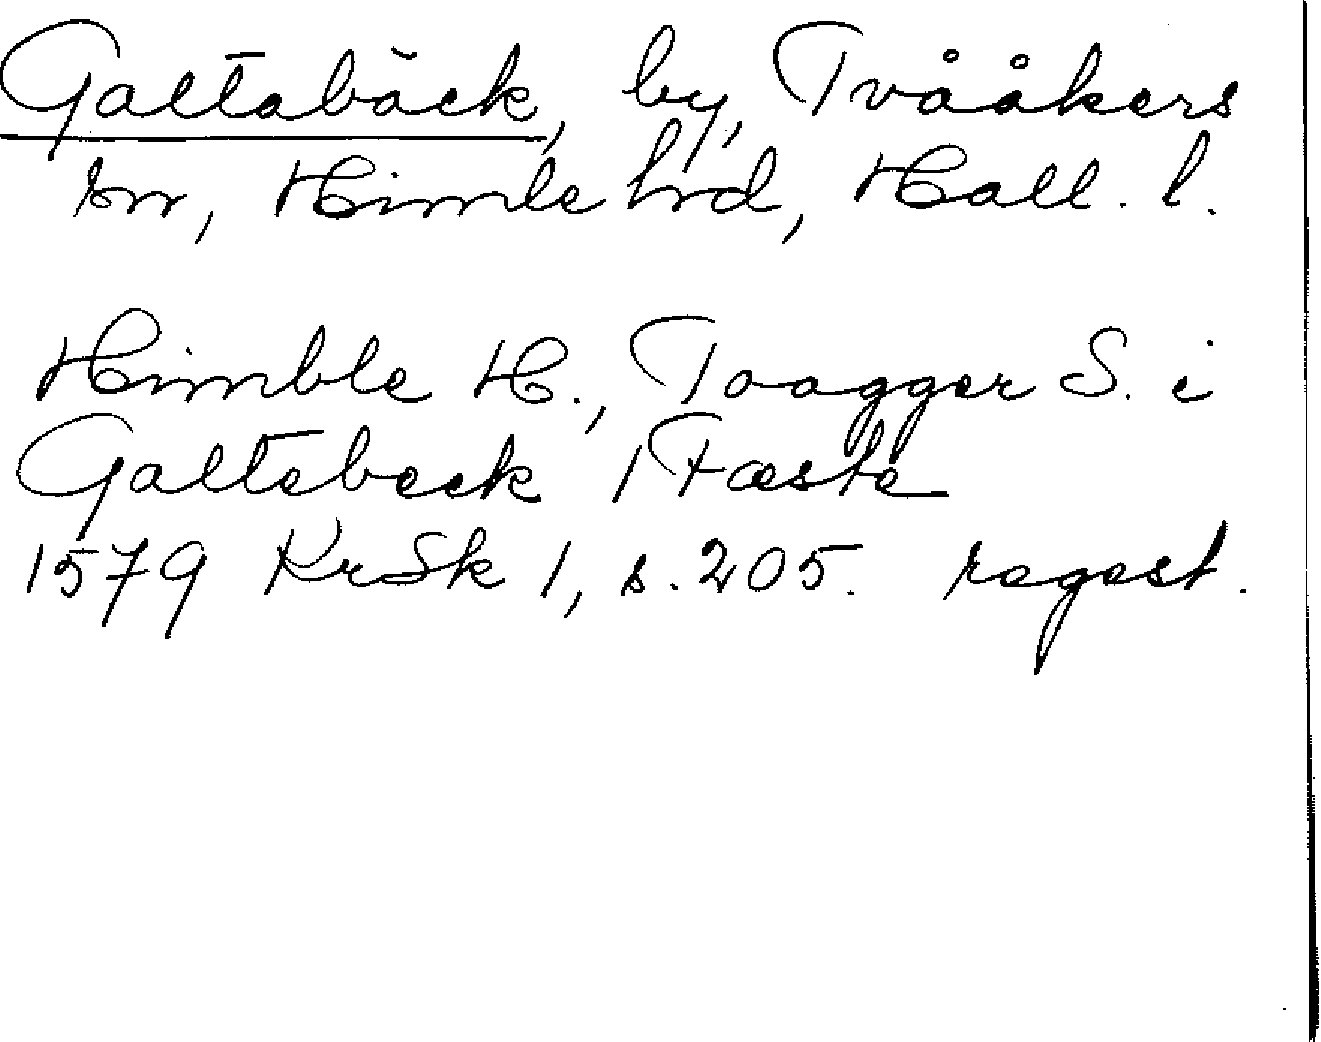 Galtabäck, by, Tvååkers
sn, Himle hrd, Hall. l.
Himble H., Toagger S. i
Galtebeck 1 Fæste
1579 KrSk 1, s. 205. regest.